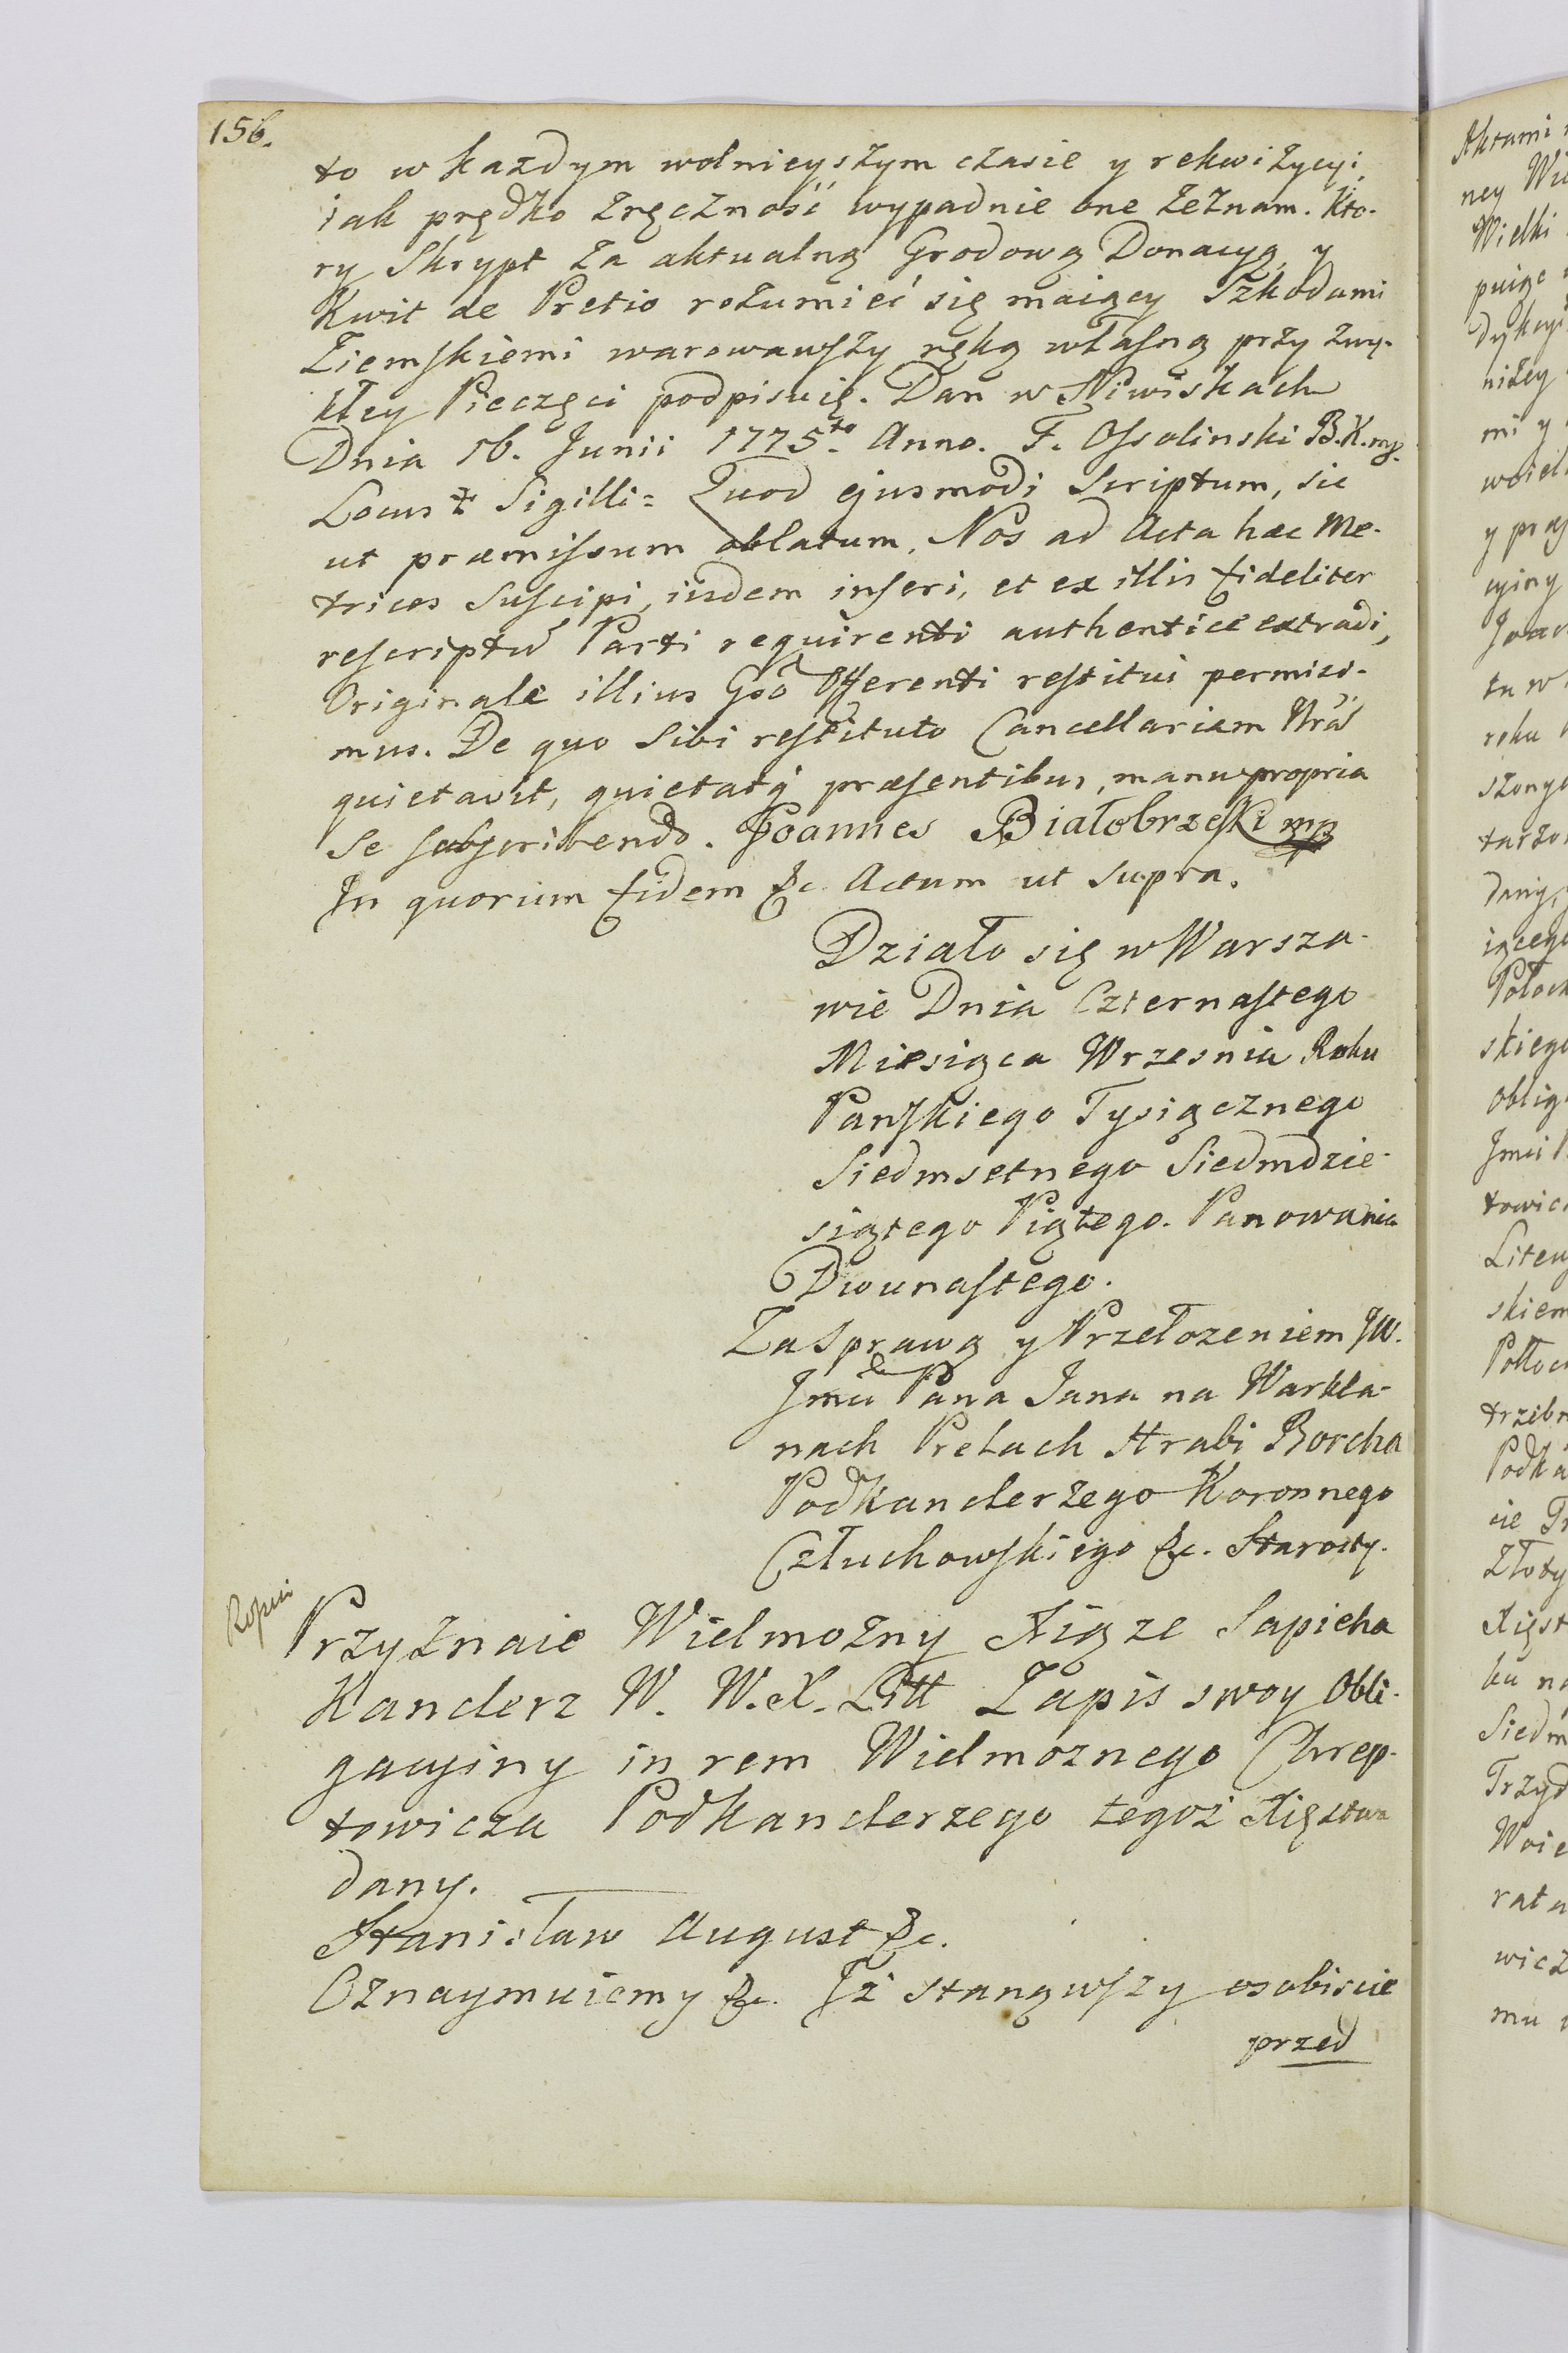 156.
to w każdym wolnieyszym czasie y rekwizycyi,
iak prędko zręczność wypadnie one zeznam. Kto-
ry Skrypt za aktualną Grodową Donacyą, y
Kwit de Pretio rozumieć się maiący Szkodami
Ziemskiemi warowawszy ręką własną przy zwy-
kłey Pieczęci podpisuię. Dan w Niwiskach
Dnia 16. Junii 1775to. Anno. F. Ossolinski B.K. mp.
Locus + Sigilli = Quod ejusmodi Scriptum, sic
ut præmissum oblatum, Nos ad Acta hæc Me-
trices Suscipi, iisdem inseri, et ex illis fideliter
rescriptū Parti requirenti authentice extradi,
Originale illius Gsō Offerenti restitui permisi-
mus. De quo Sibi restituto Cancellariam Nrā
quietavit, quietatq́ præsentibus, manu propria
Se subscribendo. Joannes Białobrzeski mp
In quorum fidem &c. Actum ut supra.
Działo się w Warsza-
wie Dnia Czternastego
Miesiąca Wrzesnia Roku
Panskiego Tysiącznego
Siedmsetnego Siedmdzie-
siątego Piątego. Panowania
Dwunastego.
Za Sprawą y Przełozeniem JW.
Jmći Pana Jana na Warkla-
nach Prelach Hrabi Borcha
Podkanclerzego Koronnego
Człuchowskiego &c. Starosty.
Przyznaie Wielmożny Xiąze Sapieha
Kanclerz W. W. X. Litt Zapis swoy Obli-
gacyiny in rem Wielmoznego Chrep-
towicza Podkanclerzego tegoż Xięstwa
dany.
Stanisław August &c.
Oznaymuiemy &c. Iż stanąwszy osobiscie
przed